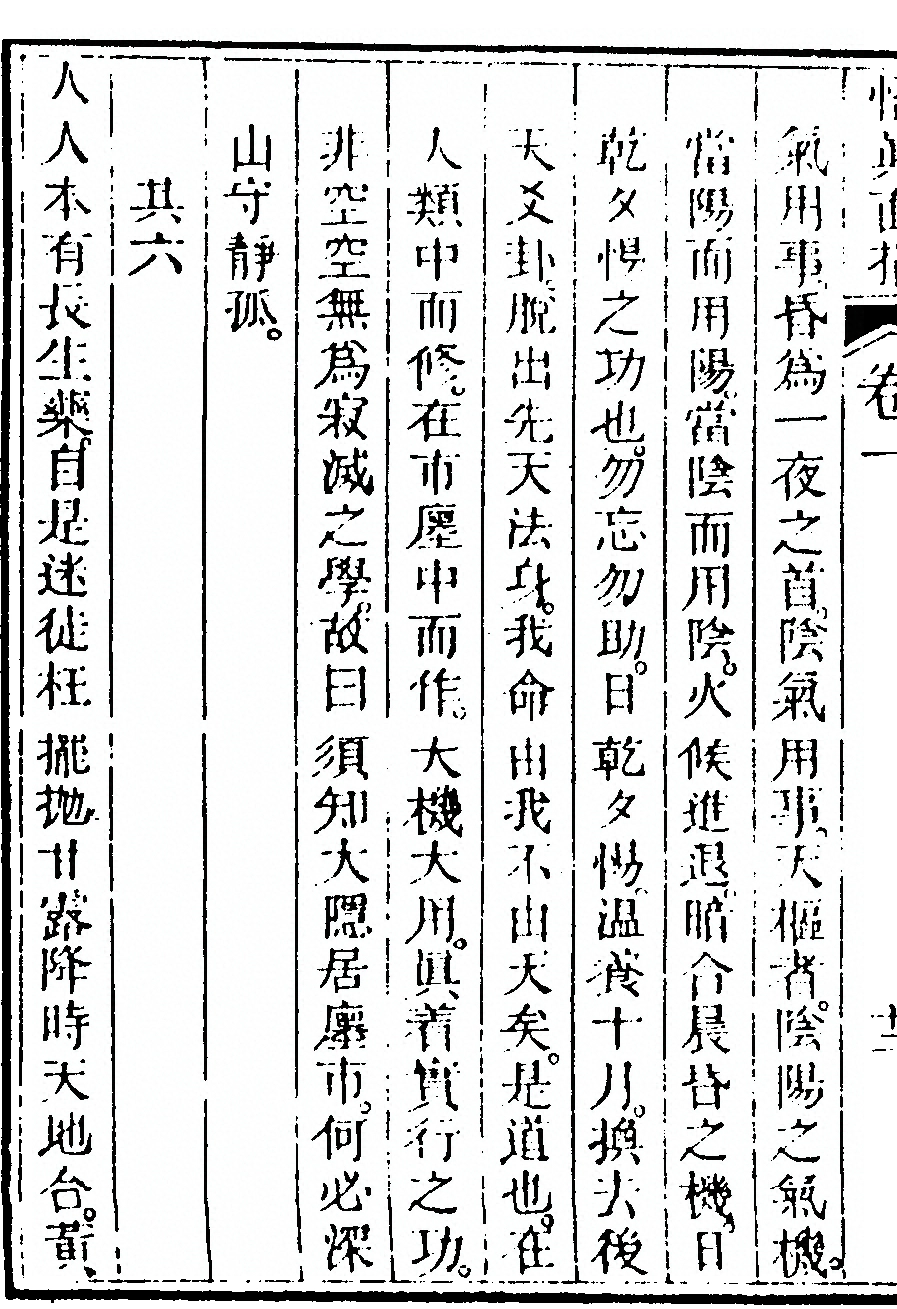 悟真直指 卷一 十二
氣用事。昏爲一夜之首。陰氣用事。天樞者。陰陽之氣機。
當陽而用陽。當陰而用陰。火候進退。暗合晨昏之機。日
乾夕惕之功也。勿忘勿助。日乾夕惕。温養十月。換去後
天爻卦。脫出先天法身。我命由我不由天矣。是道也。在
人類中而修。在市廛中而作。大機大用。眞着實行之功。
非空空無爲寂滅之學。故曰須知大隱居廛市。何必深
山守靜孤。
其六
人人本有長生藥。自是迷徒枉擺抛。甘露降時天地合。黃